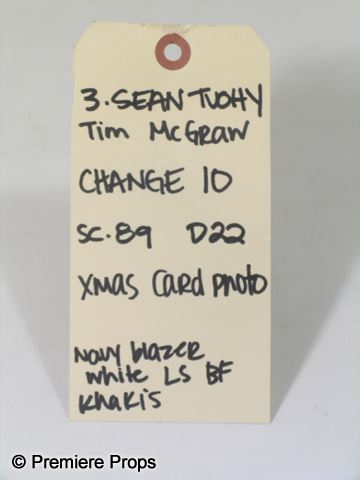 3. SEAN TUOHY
Tim McGraw
CHANGE 10
SC. 89 D22
XMAS CARD PHOTO
Navy blazer
white LS BF
Khakis
© Premiere Props